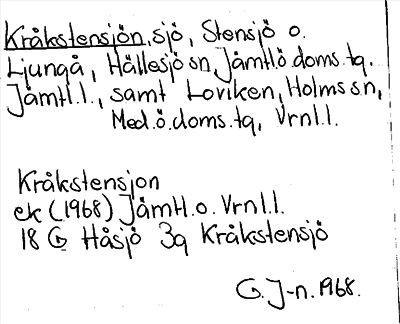 Kråkstensjön, sjö, Stensjö o.
Ljungå, Hällesjö sn, Jämtl.ö.doms.tg.
Jämtl.l., samt Loviken, Holms sn,
Med.ö.doms.tg, Vrnl.l.
Kråkstensjon
ek (1968) Jämtl.o. Vrnl.l.
18 G Håsjö 3g Kråkstensjö
G. J-n. 1968.